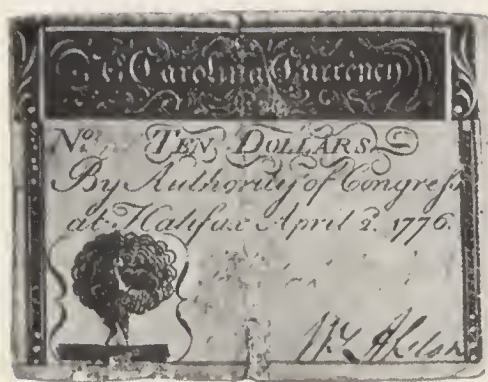 Carolina Currency
No. TEN DOLLARS
By Authority of Congress
at Halifax April 2. 1776.